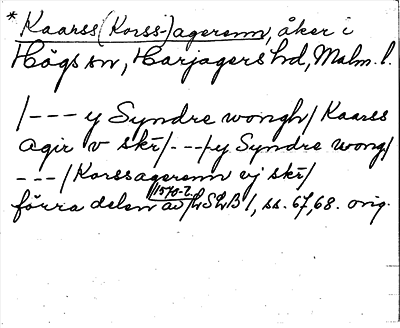 * Kaarss (Korss-) agerenn, åker i
Högs sn, Harjagers hd, Malm. l.
/--- y Syndre wongh/ Kaarss
agir v skr/---/y Syndre wong/
---/Korssagerenn ej skr/
1570-t.
förra delen av LSLB 1, ss. 67, 68. orig.